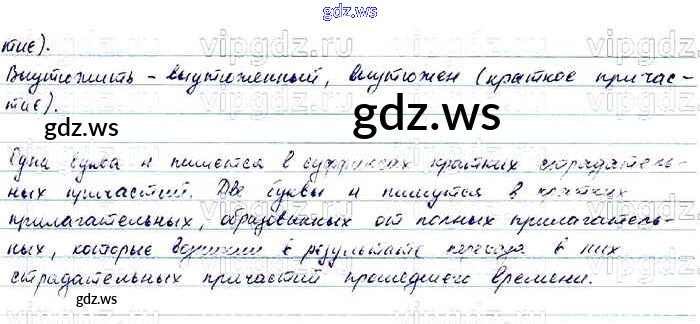 gdz.ws
тие).
Выутюжить - выутюженный, выутюжен (краткое причас-
тие).
gdz.ws
gdz.ws
Одна буква н пишется в суффиксах кратких страдатель-
ных причастий. Две буквы н пишутся в кратких
прилагательных, образованных от полных прилагатель-
ных, которые возникли в результате перехода в них
страдательных причастий прошедшего времени.
gdz.ws
gdz.ws